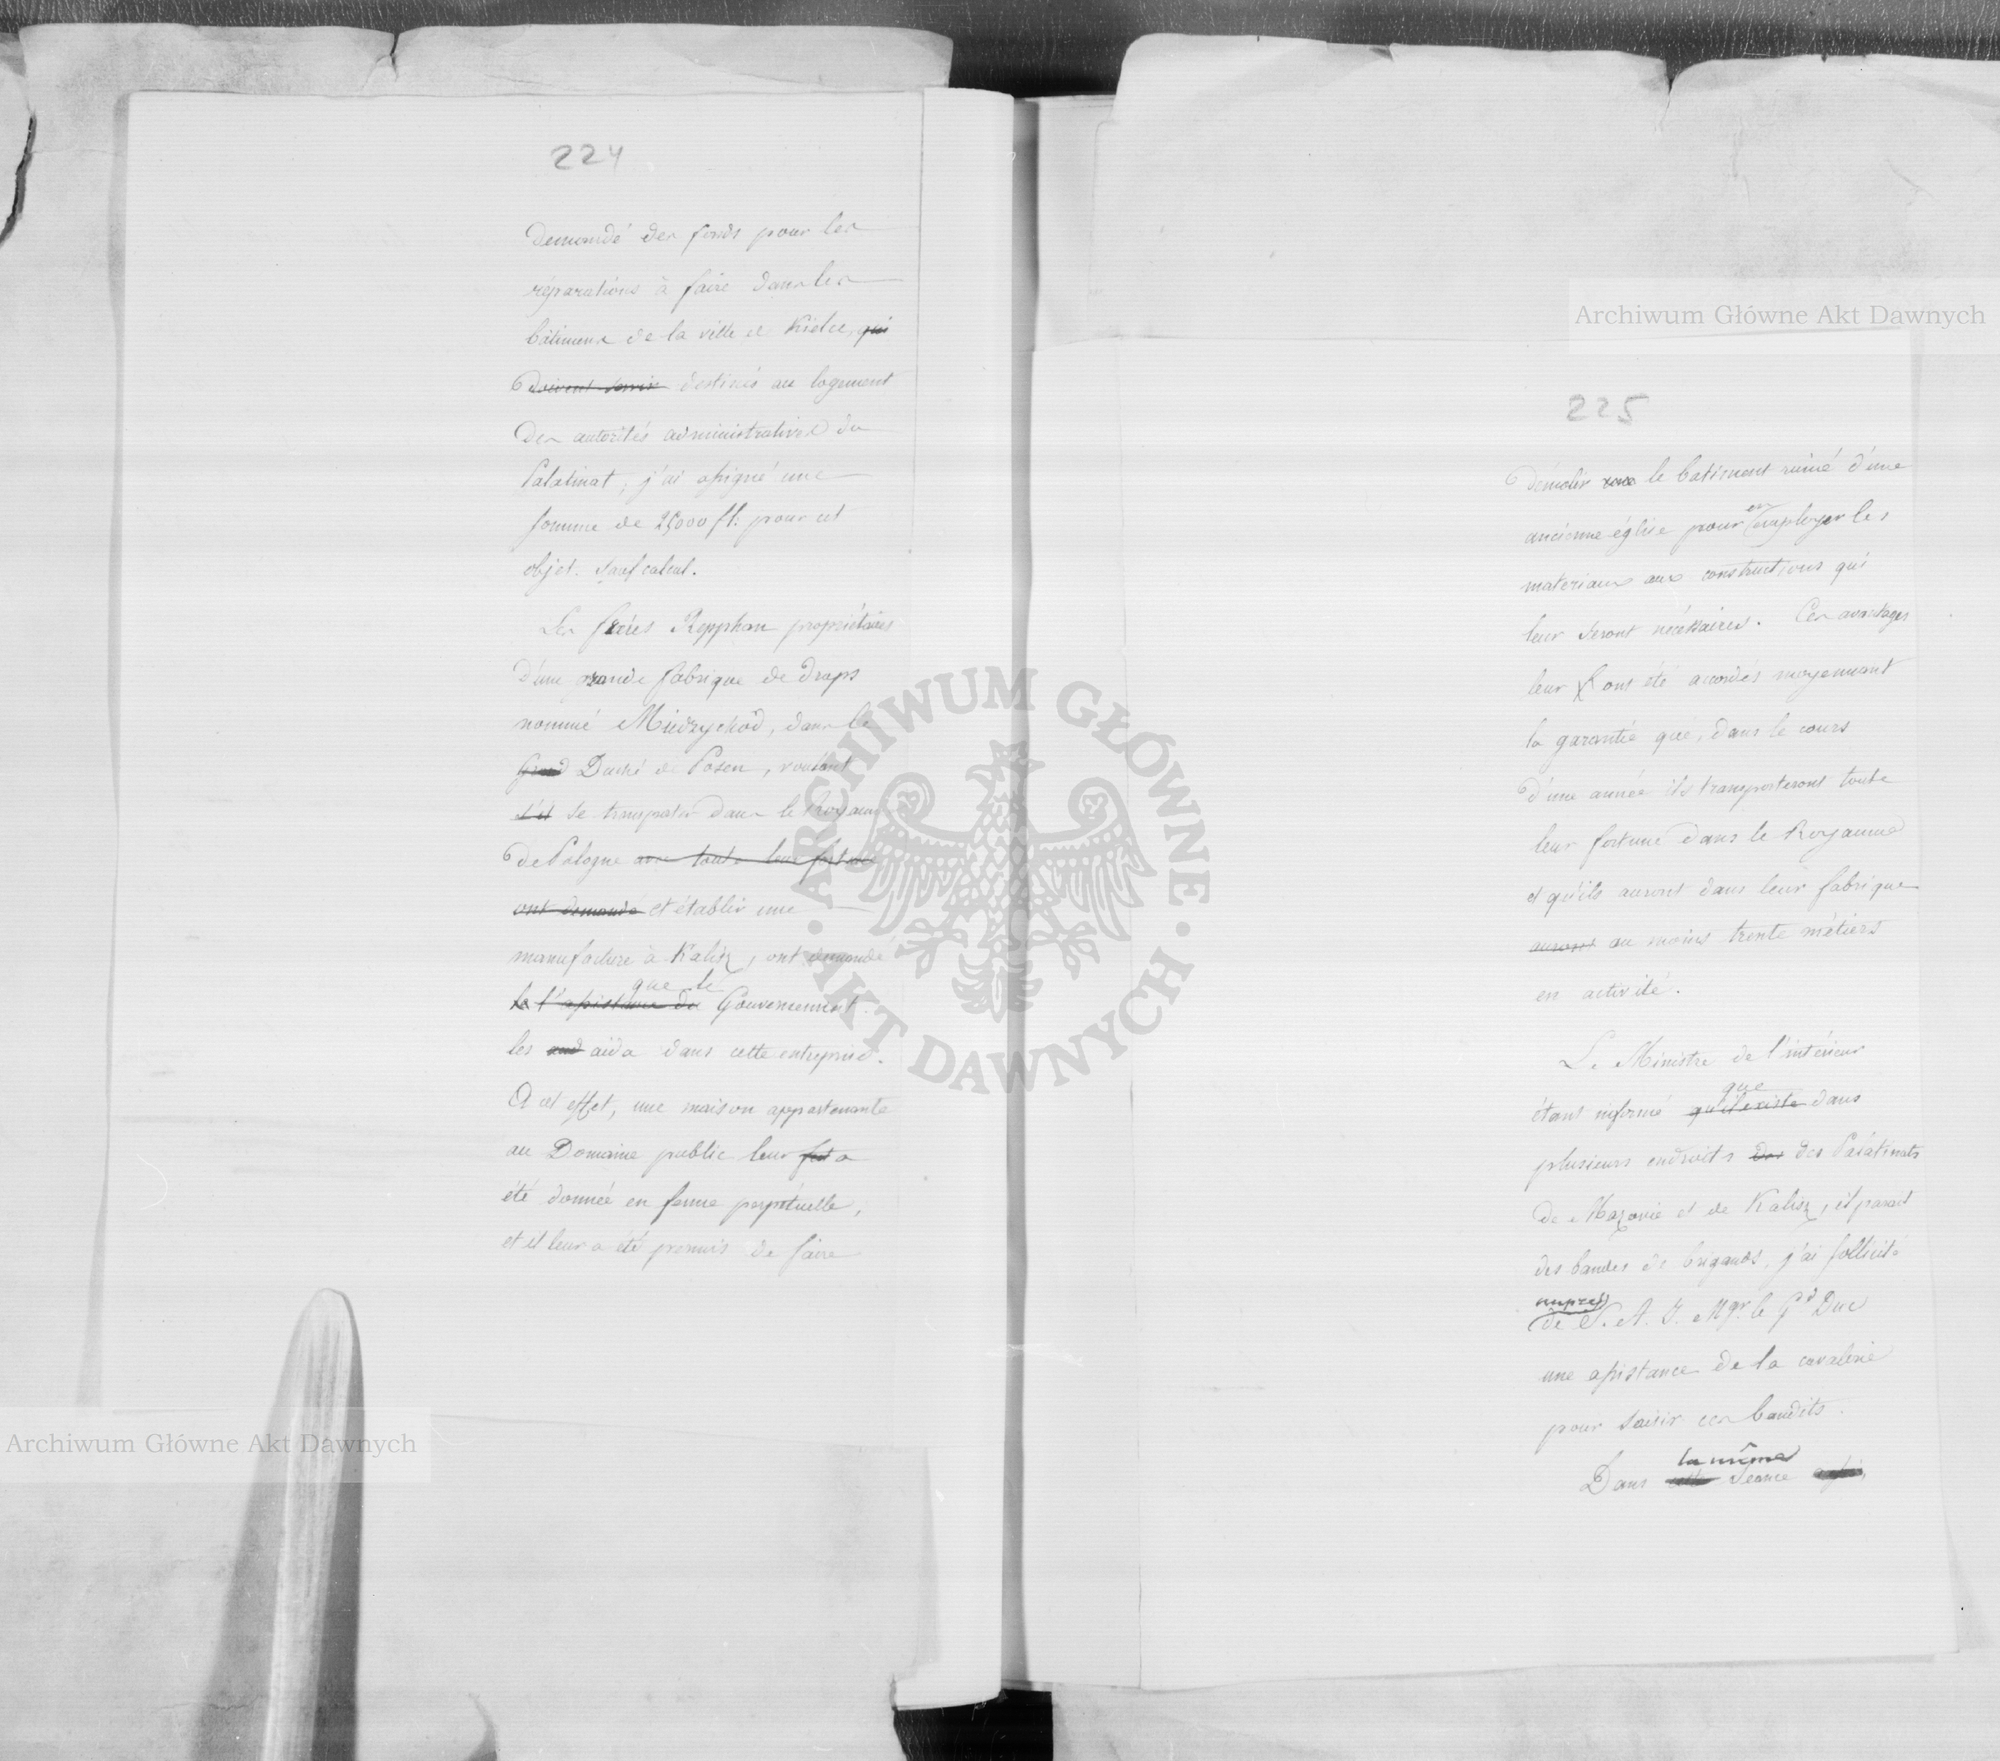 224
demandé des fonds pour les
réparations à faire dans les
bâtimens de la ville de Kielce, qui
doivent servir destinés au logement
des autorités administratives du
Palatinat, j'ai assigné une
somme de 25000 fl. pour cet
objet. sauf calcul.
Les frères Repphan propriétaires
d'une grande fabrique de draps
nommé Miedzychód, dans le
Grand Duché de Posen, voulant
se transporter dans le Royaume
de Pologne avec toute leur fortune
ont demandé et établir une
manufacture à Kalisz, ont demandé
que le
l'assistance du Gouvernement
les aida dans cette entreprise.
A cet effet, une maison appartenante
au Domaine public leur fut a
été donnée en ferme perpétuelle,
et il leur a été permis de faire
225
démolir le batiment ruiné d'une
en
ancienne église pour employer les
materiaux aux constructions qui
leur seront nécessaires. Ces avantages
leur ont été accordés moyennant
la garantie que, dans le cours
d'une année ils transporteront toute
leur fortune dans le Royaume
et qu'ils auront dans leur fabrique
auront au moins trente métiers
en activité.
Le Ministre de l'intérieur
que
étant informé qu'il existe dans
plusieurs endroits des des Palatinats
de Mazovie et de Kalisz, il parait
des bandes de brigands, j'ai sollicité
auprès
de S. A. I. Mgr. le Gd Duc
une assistance de la cavalerie
pour saisir ces bandits.
la même
Dans cette séance
Archiwum Główne Akt Dawnych
Archiwum Główne Akt Dawnych
ARCHIWUM GŁÓWNE
AKT DAWNYCH